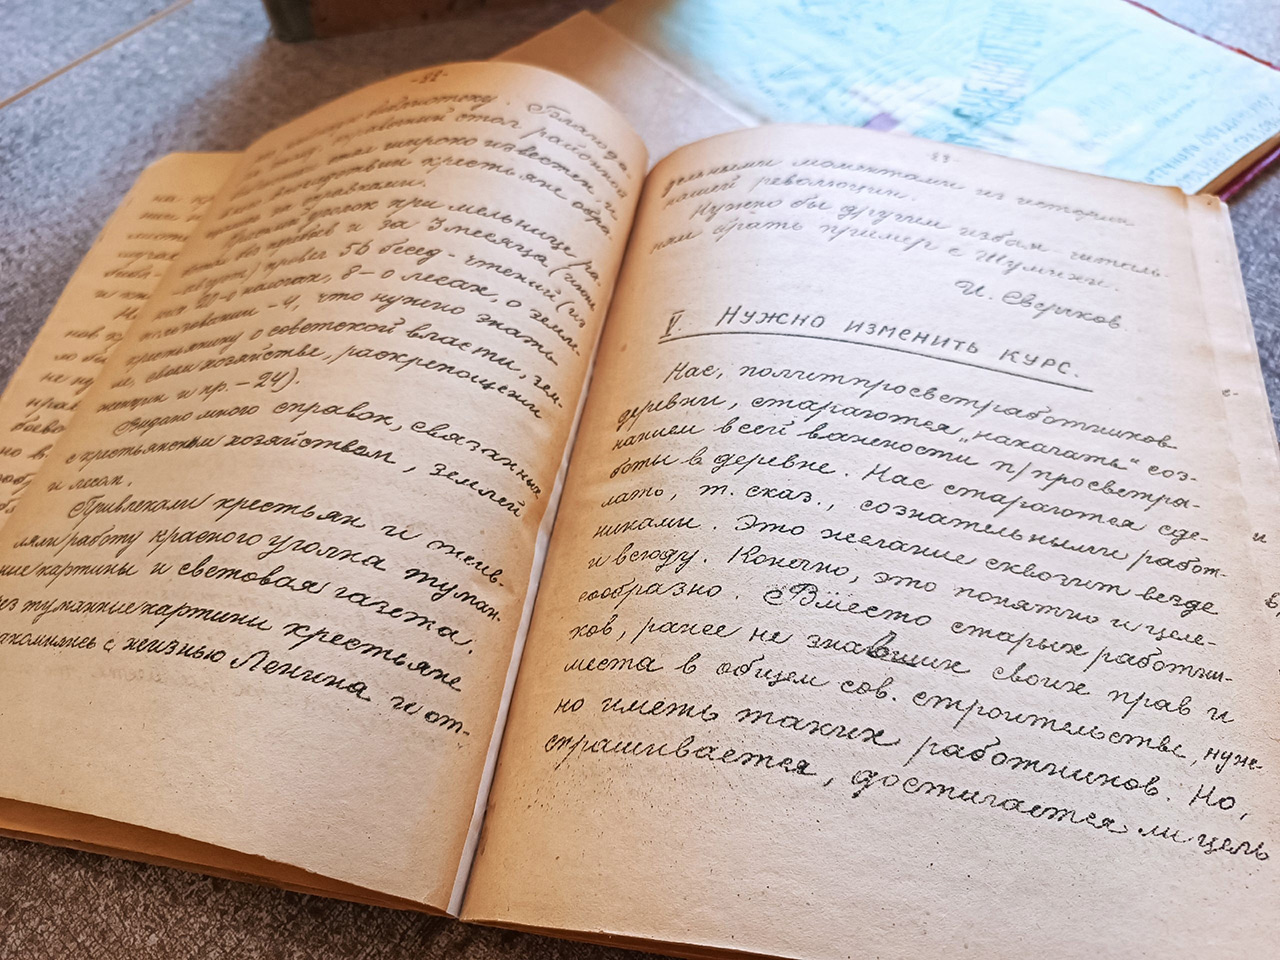 -22-
библиотеку. Благода-
стол районной
стал широко известен, и
впоследствии крестьяне обра-
за справками.
уголок при мельнице ра-
и за 3 месяца (июнь
-август) провел 56 бесед-чтений (из
них 20-о налогах, 8-о лесах, о земле-
-4, что нужно знать
крестьянину о советской власти, зем-
ле, своем хозяйстве, раскрепощении
женщин и пр. - 24).
Выдано много справок, связанных
с крестьянским хозяйством, землей
и лесах.
Привлекали крестьян и ожив-
ляли работу красного уголка туман-
ные картины и световая газета.
Через туманные картины крестьяне
знакомились с жизнью Ленина и от-
23
дельными моментами из истории
нашей революции.
Нужно бы другим избам читаль-
ням брать пример с Шумихи.
И. Сверчков.
V. НУЖНО ИЗМЕНИТЬ КУРС.
Нас, политпросветработников
деревни, стараются „накачать“ соз-
нанием всей важности п/просветра-
боты в деревне. Нас стараются сде-
лать, т. сказ., сознательными работ-
никами. Это желание сквозит везде
и всюду. Конечно, это понятно и целе-
сообразно. Вместо старых работни-
ков, ранее не знавших своих прав и
места в общем сов. строительстве, нуж-
но иметь таких работников. Но,
спрашивается, достигается ли цель